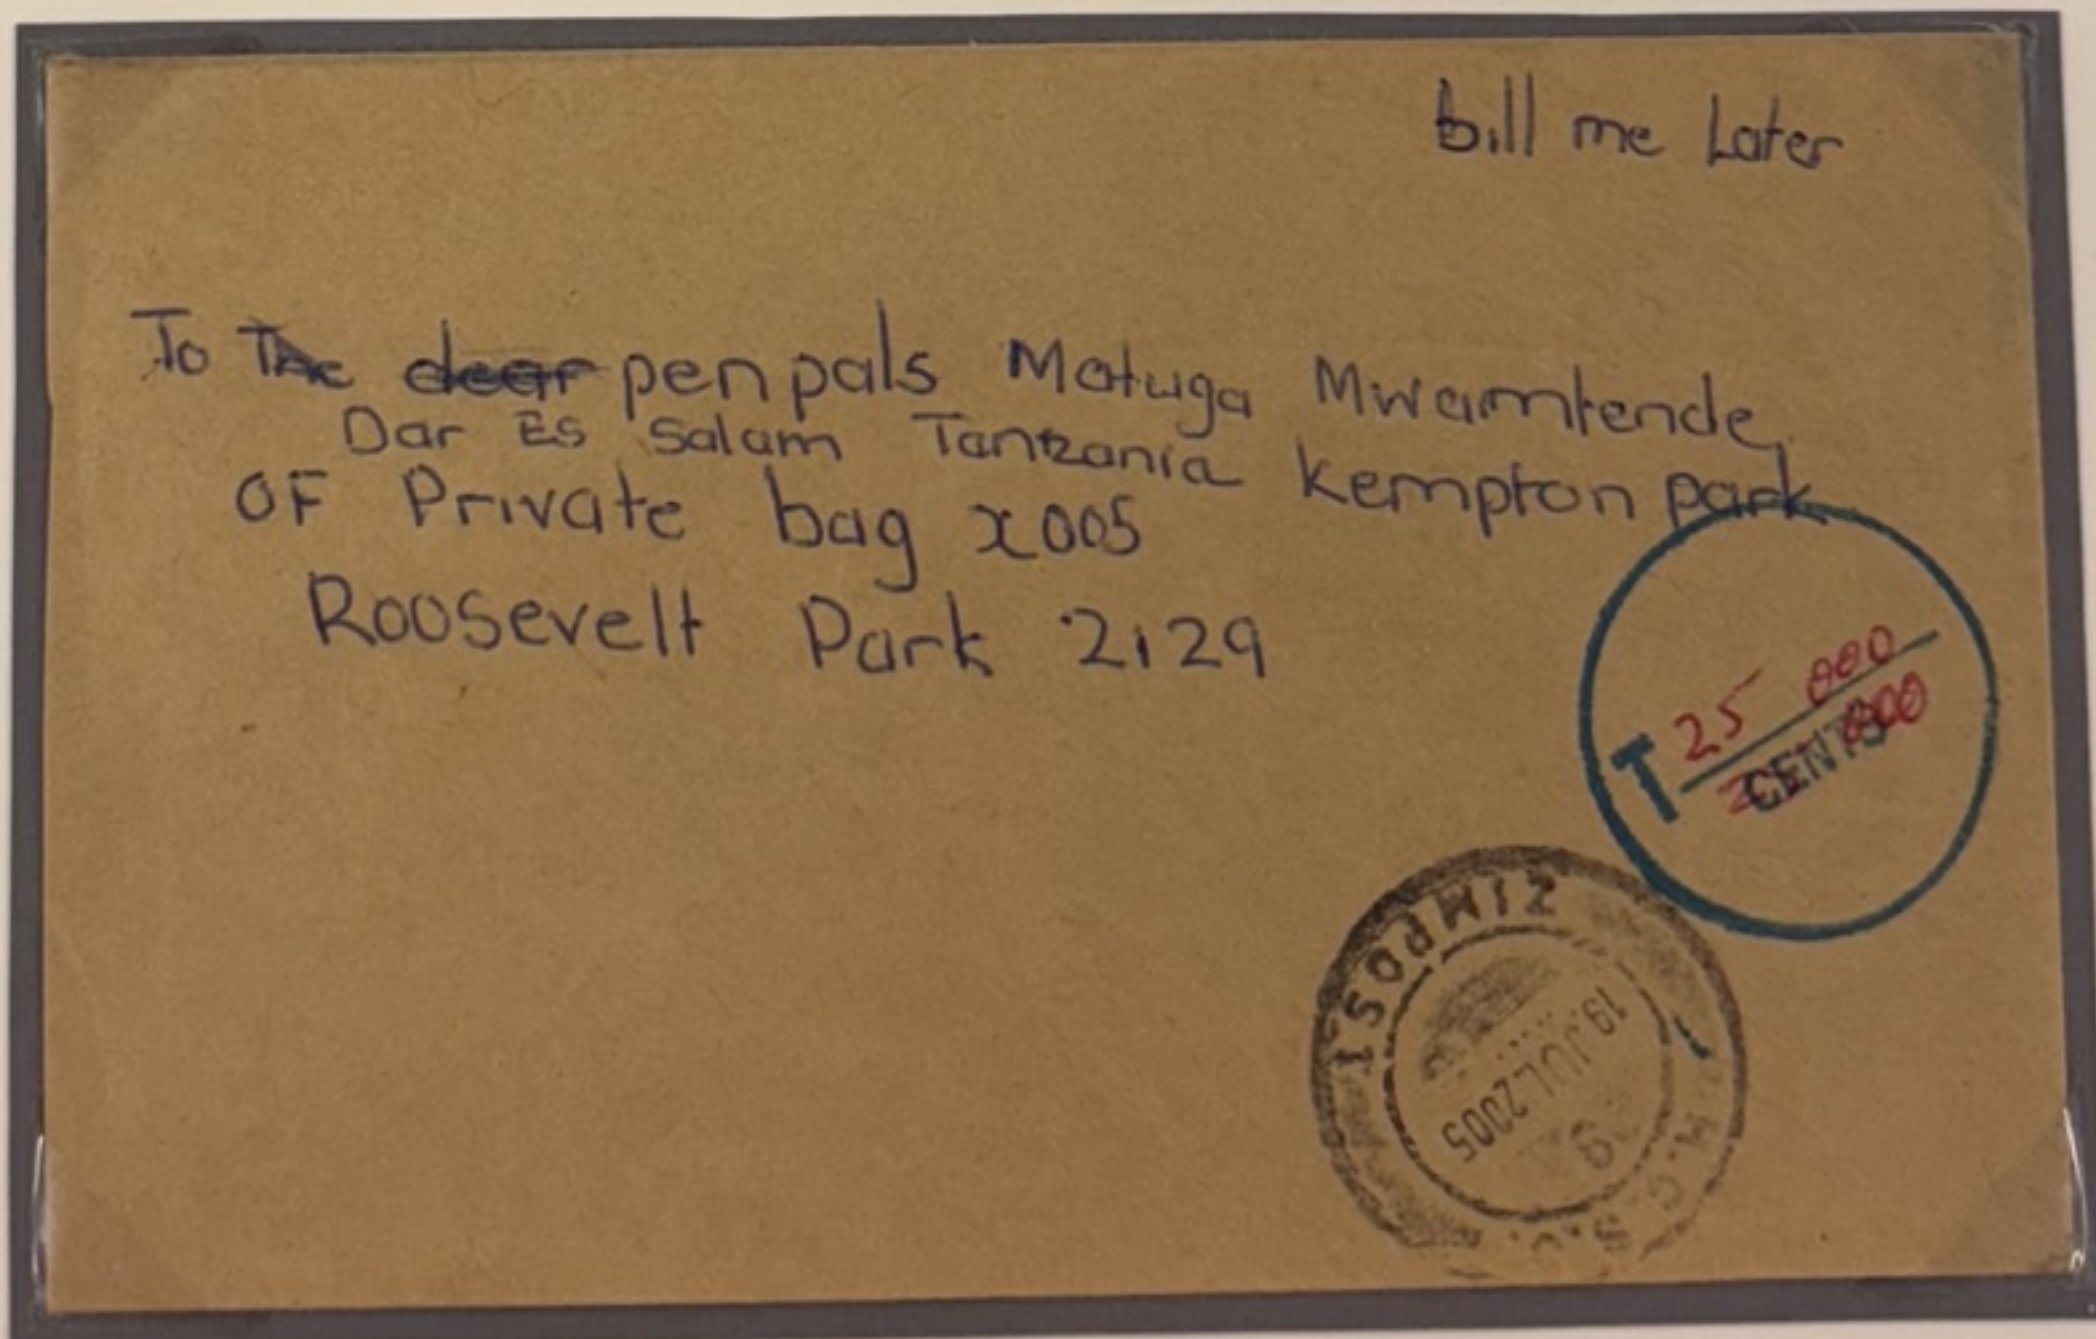 bill me Later
To The dear pen pals Matuga Mwamtende
Dar Es Salam Tanzania Kempton park
OF Private bag x005
Roosevelt Park 2129
T 25 000
CENTS
ZIMPOST
19.JUL 2005